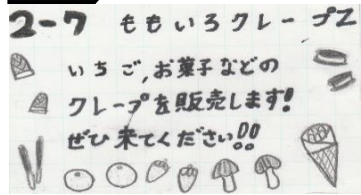 2-7 ももいろクレープZ
いちご,お菓子などの
クレープを販売します!
ぜひ来てください!!